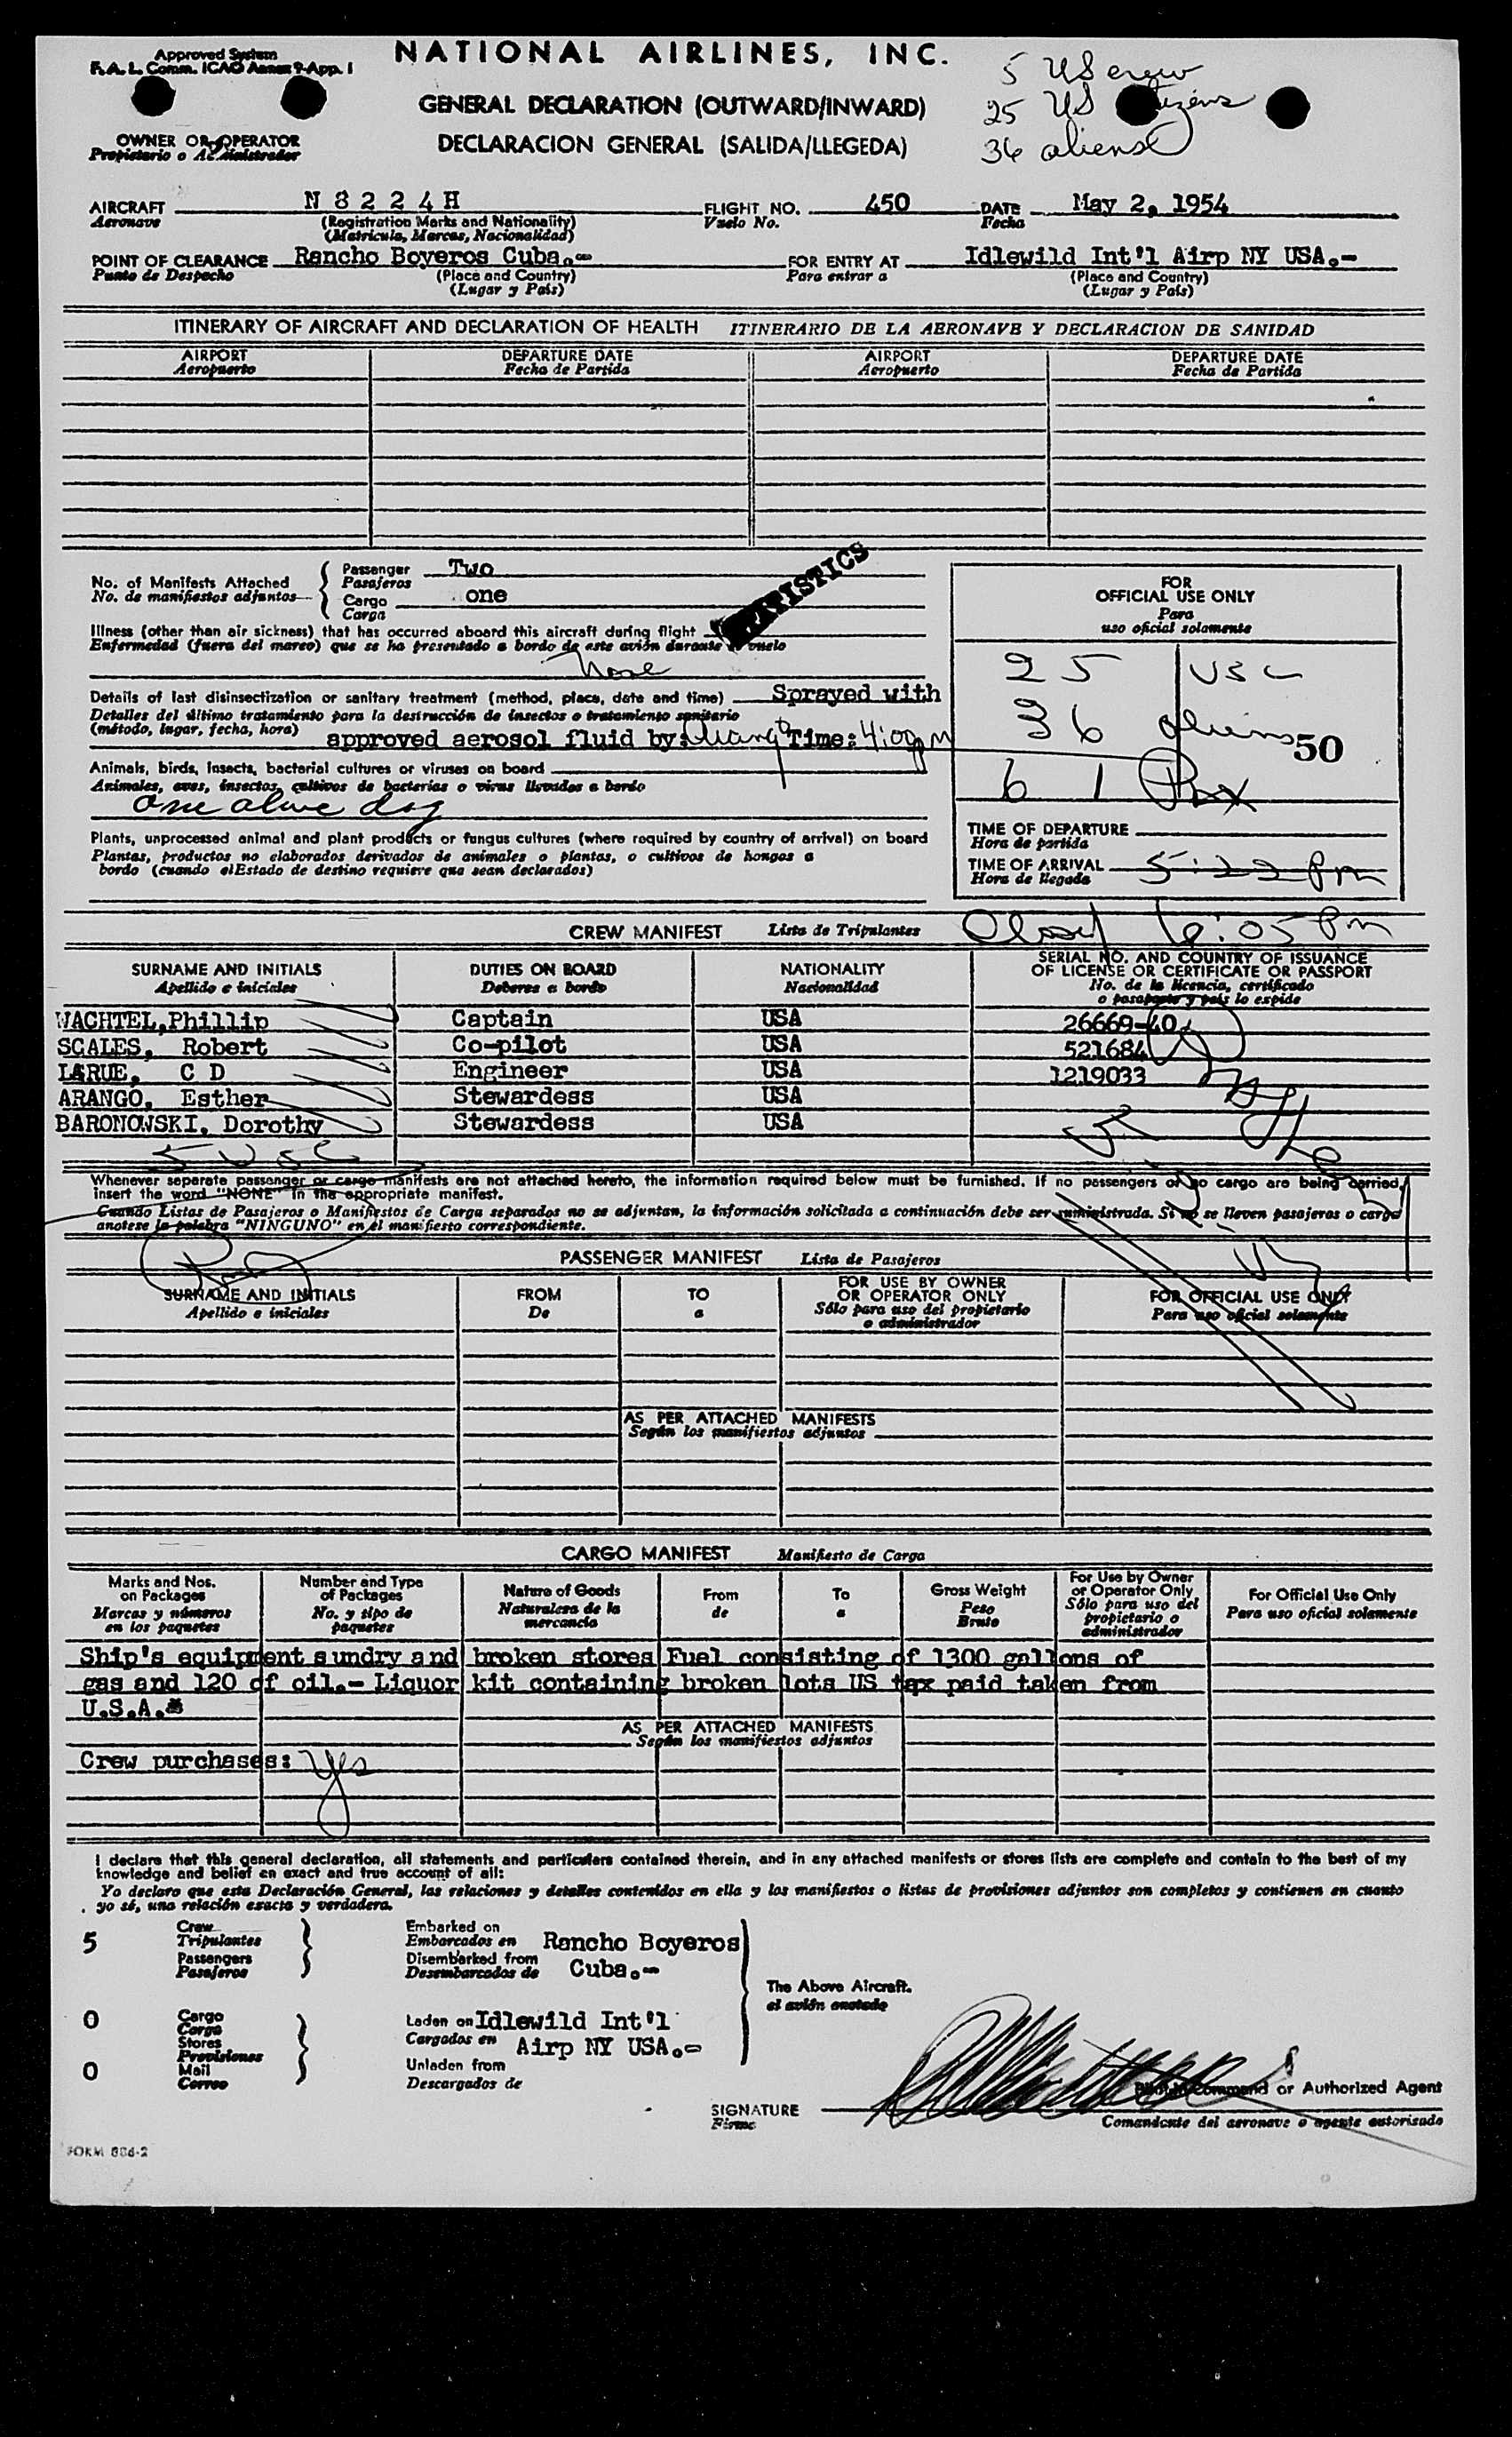 Approved System
F.A.L. Comm. ICAO Annex 9-App. 1
NATIONAL AIRLINES, INC.
5 US crew
25 US citizens
36 aliens
GENERAL DECLARATION (OUTWARD/INWARD)
DECLARACION GENERAL (SALIDA/LLEGEDA)
OWNER OR OPERATOR
Propietario o Administrador
AIRCRAFT N 8 2 2 4 H FLIGHT NO. 450 DATE May 2, 1954
Aeronave (Registration Marks and Nationality) Vuelo No. Fecha
(Matricula, Marcas, Nacionalidad)
POINT OF CLEARANCE Rancho Boyeros Cuba.- FOR ENTRY AT Idlewild Int'l Airp NY USA.-
Punto de Despacho (Place and Country) Para entrar a (Place and Country)
(Lugar y País) (Lugar y País)
ITINERARY OF AIRCRAFT AND DECLARATION OF HEALTH ITINERARIO DE LA AERONAVE Y DECLARACION DE SANIDAD
AIRPORT DEPARTURE DATE AIRPORT DEPARTURE DATE
Aeropuerto Fecha de Partida Aeropuerto Fecha de Partida
No. of Manifests Attached Passenger Two
No. de manifiestos adjuntos Pasajeros
Cargo one
Carga
STATISTICS
Illness (other than air sickness) that has occurred aboard this aircraft during flight
Enfermedad (fuera del mareo) que se ha presentado a bordo de este avión durante el vuelo
None
Details of last disinsectization or sanitary treatment (method, place, date and time) Sprayed with
Detalles del último tratamiento para la destrucción de insectos o tratamiento sanitario
(método, lugar, fecha, hora) approved aerosol fluid by: Time: 4:00pm
Animals, birds, insects, bacterial cultures or viruses on board
Animales, aves, insectos, cultivos de bacterias o virus llevados a bordo
One alive dog
Plants, unprocessed animal and plant products or fungus cultures (where required by country of arrival) on board
Plantas, productos no elaborados derivados de animales o plantas, o cultivos de hongos a
bordo (cuando elEstado de destino requiere que sean declarados)
FOR
OFFICIAL USE ONLY
Para
uso oficial solamente
25 USC
36 aliens 50
61 Pax
TIME OF DEPARTURE
Hora de partida
TIME OF ARRIVAL 5:22 Pm
Hora de llegada
Closed 6:05 Pm
CREW MANIFEST Lista de Tripulantes
SURNAME AND INITIALS DUTIES ON BOARD NATIONALITY SERIAL NO. AND COUNTRY OF ISSUANCE
OF LICENSE OR CERTIFICATE OR PASSPORT
Apellido e iniciales Deberes a bordo Nacionalidad No. de la licencia, certificado
o pasaporte y país lo expide
WACHTEL,Phillip Captain USA 26669-40
SCALES, Robert Co-pilot USA 521684
LARUE, C D Engineer USA 1219033
ARANGO, Esther Stewardess USA
BARONOWSKI, Dorothy Stewardess USA
5 USC
Whenever separate passenger or cargo manifests are not attached hereto, the information required below must be furnished. If no passengers or no cargo are being carried,
insert the word "NONE" in the appropriate manifest.
Cuando Listas de Pasajeros o Manifiestos de Carga separados no se adjuntan, la información solicitada a continuación debe ser suministrada. Si no se lleven pasajeros o carga
anotese la palabra "NINGUNO" en el manifiesto correspondiente.
PASSENGER MANIFEST Lista de Pasajeros
SURNAME AND INITIALS FROM TO FOR USE BY OWNER
OR OPERATOR ONLY FOR OFFICIAL USE ONLY
Apellido e iniciales De a Sólo para uso del propietario
o administrador Para uso oficial solamente
AS PER ATTACHED MANIFESTS
Según los manifiestos adjuntos
CARGO MANIFEST Manifiesto de Carga
Marks and Nos.
on Packages
Marcas y números
en los paquetes
Number and Type
of Packages
No. y tipo de
paquetes
Nature of Goods
Naturaleza de la
mercancía
From
de
To
a
Gross Weight
Peso
Bruto
For Use by Owner
or Operator Only
Sólo para uso del
propietario o
administrador
For Official Use Only
Para uso oficial solamente
Ship's equipment sundry and broken stores Fuel consisting of 1300 gallons of
gas and 120 of oil.- Liquor kit containing broken lots US tax paid taken from
U.S.A.
AS PER ATTACHED MANIFESTS
Según los manifiestos adjuntos
Crew purchases: Yes
I declare that this general declaration, all statements and particulars contained therein, and in any attached manifests or stores lists are complete and contain to the best of my
knowledge and belief an exact and true account of all:
Yo declaro que esta Declaración General, las relaciones y detalles contenidos en ella y los manifiestos o listas de provisiones adjuntos son completos y contienen en cuanto
yo sé, una relación exacta y verdadera.
5 Crew
Tripulantes
Passengers
Pasajeros
Embarked on
Embarcados en Rancho Boyeros
Disembarked from
Desembarcados de Cuba.-
The Above Aircraft.
el avión anotado
0 Cargo
Carga
Stores
Provisiones
0 Mail
Correo
Laden on Idlewild Int'l
Cargados en Airp NY USA.-
Unladen from
Descargados de
Pilot in Command or Authorized Agent
SIGNATURE
Firma
Comandante del aeronave o agente autorizado
FORM 886-2